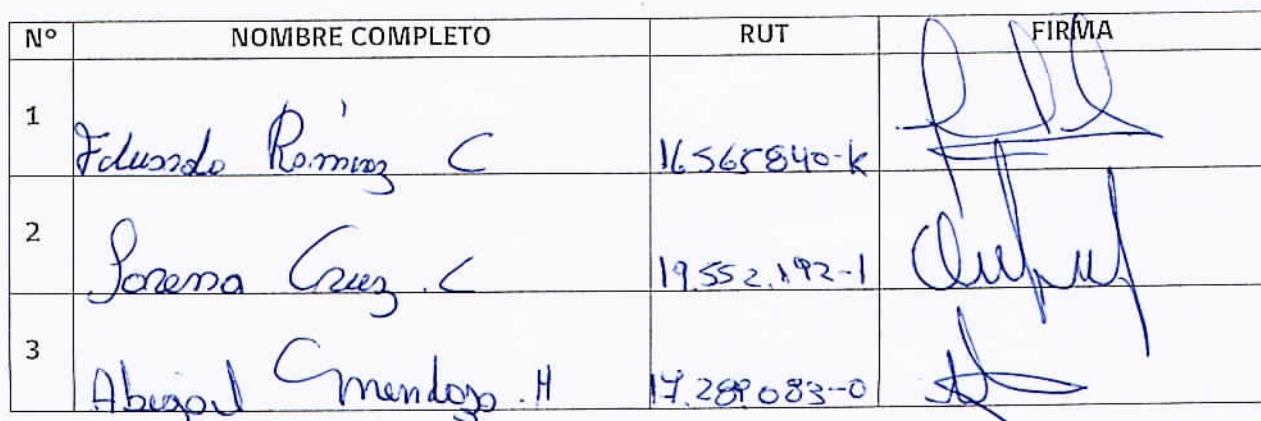 Nº NOMBRE COMPLETO RUT FIRMA
1 Eduardo Ramírez C 16565840-K
2 Lorena Cruz. C 19.552.192-1
3 Abigail Mendoza. H 17.289.083-0